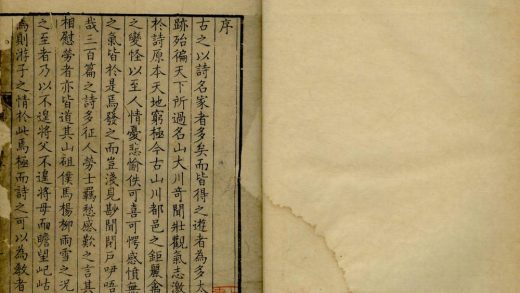 序
古之以詩名家者多矣而皆得之遊者為多太
跡殆徧天下所過名山大川奇聞壯觀氣志激
於詩原本天地窮極今古山川都邑之鉅麗禽
之變怪以至人情憂悲愉佚可喜可愕感憤無
之氣皆於是焉發之而豈淺見尟聞閉戶咿唔
哉三百篇之詩多征人勞士羈愁感歎之言其
相慰勞者亦皆道其山徂僕馬楊柳雨雪之況
之至者乃以不遑將父不遑將母而瞻望屺岵
為則游子之情於此焉極而詩之可以為教者